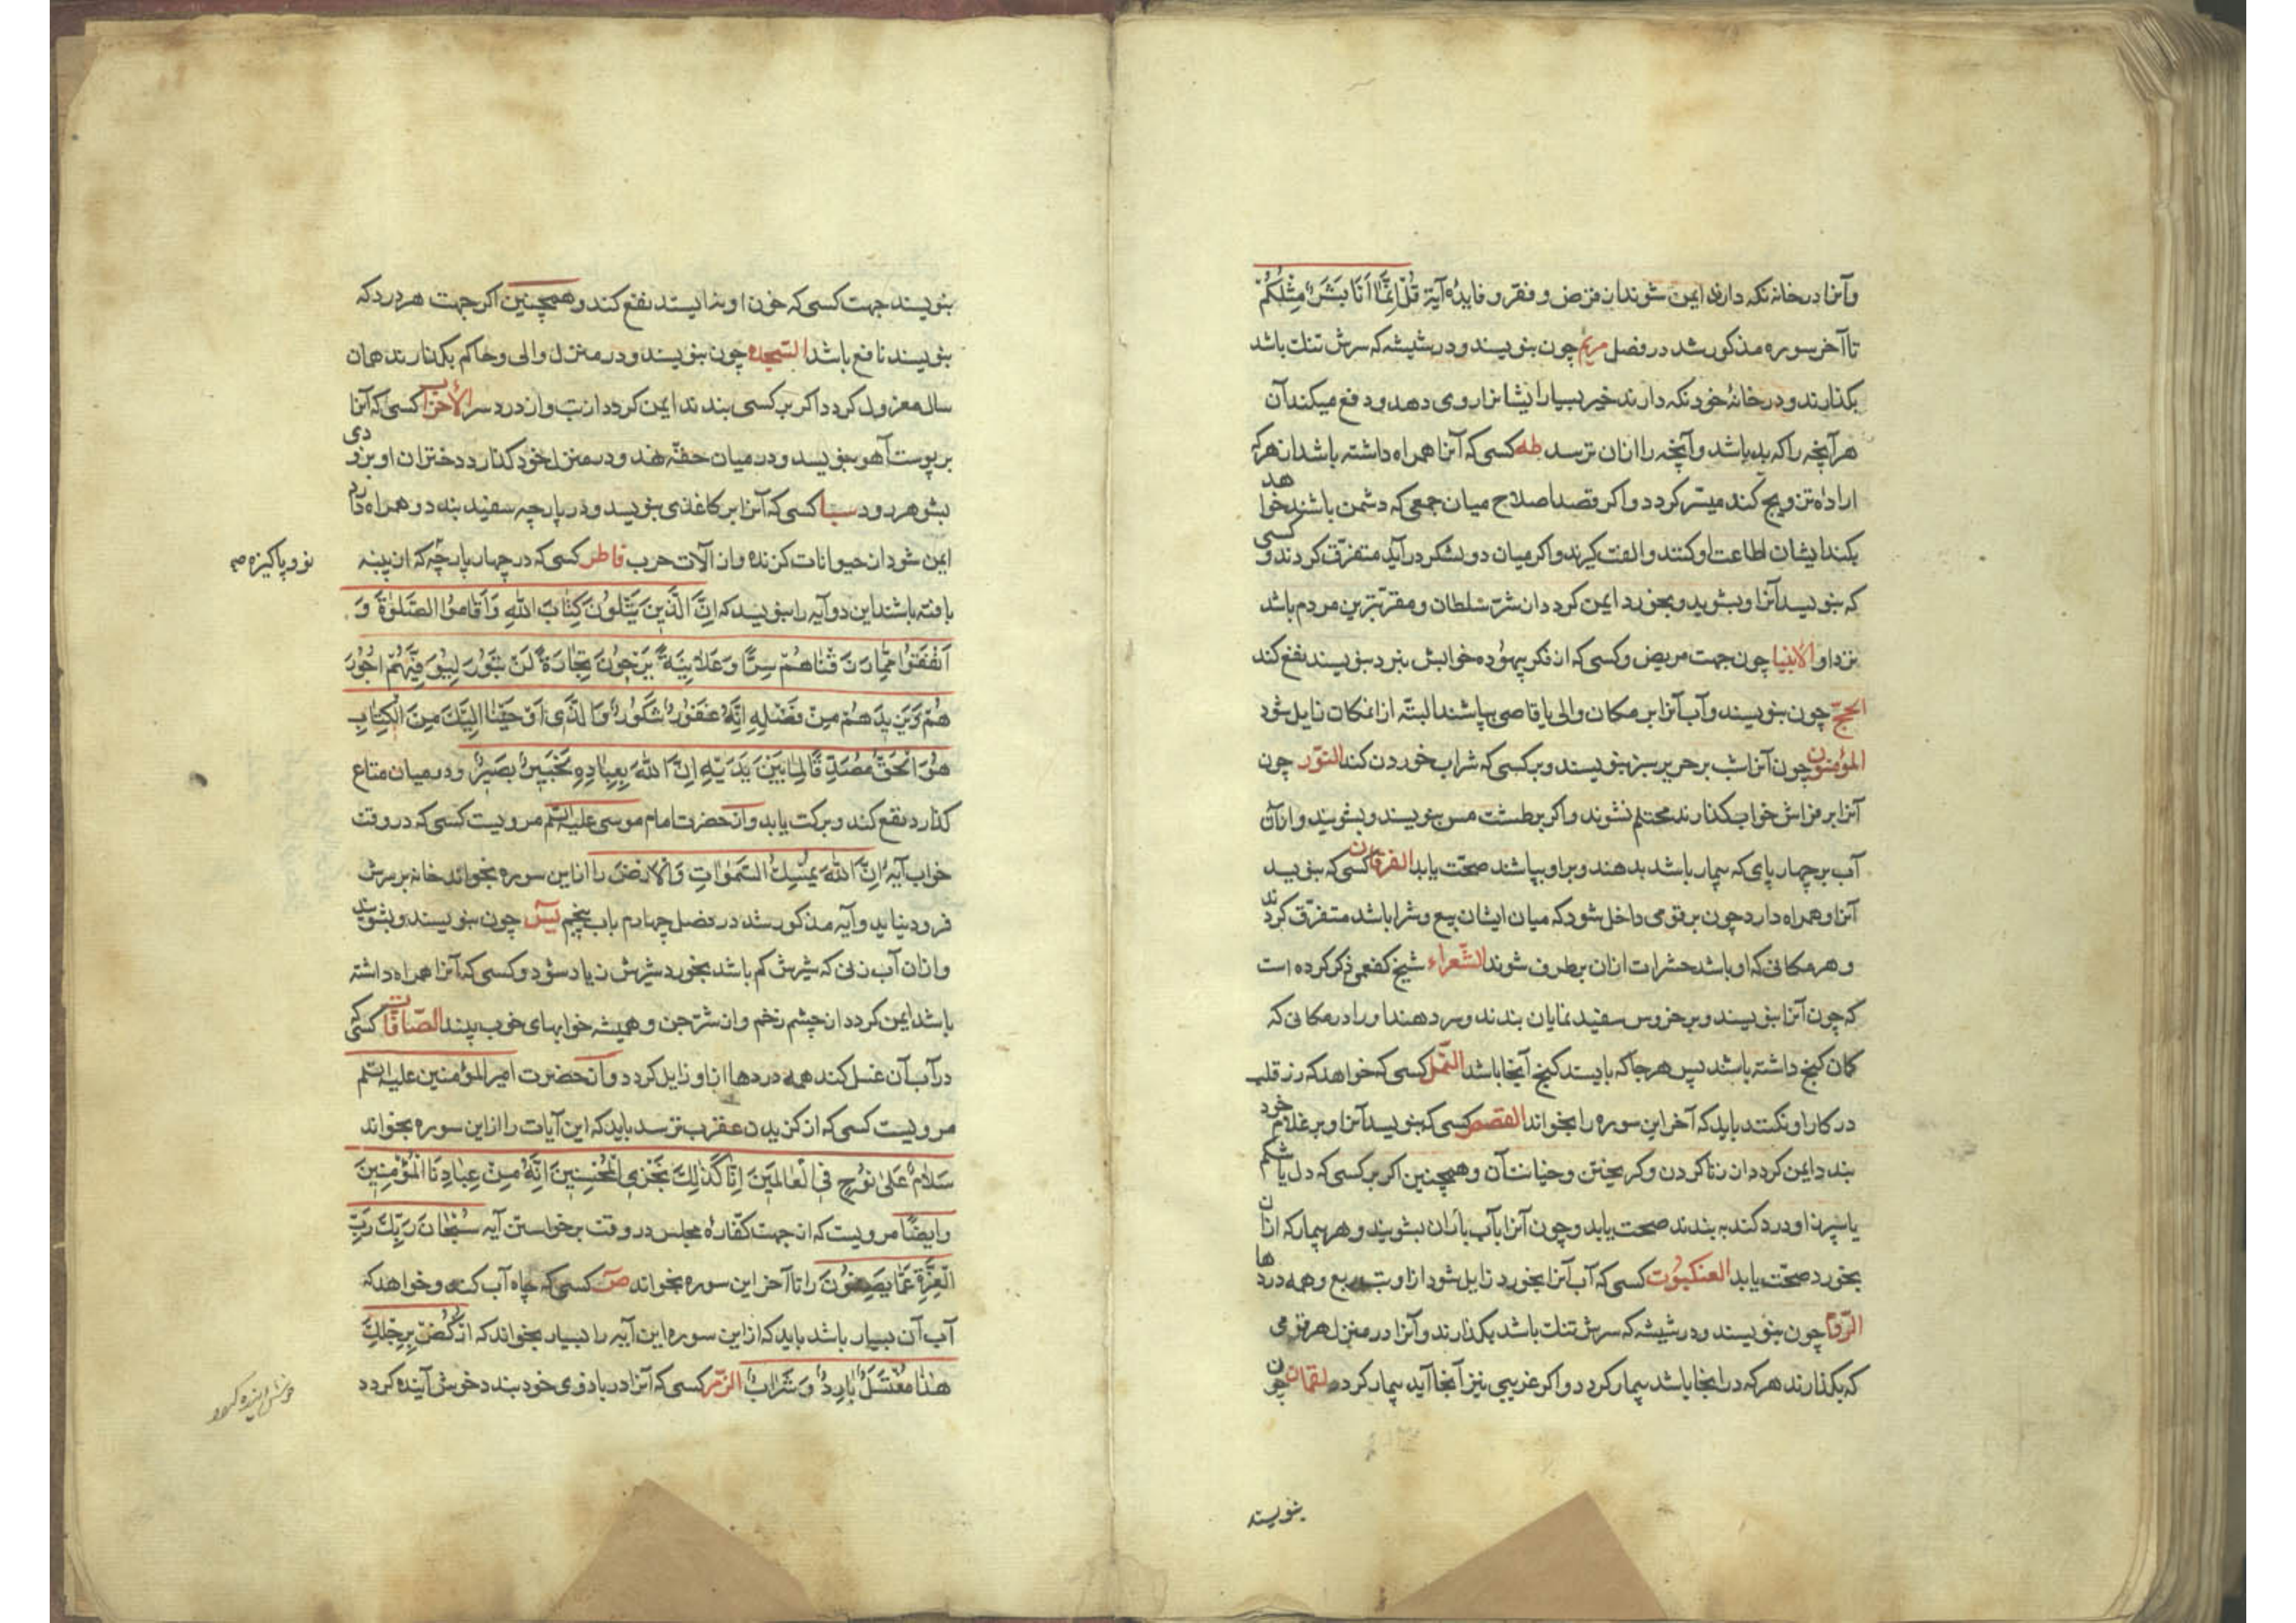 وآنرا در خانه نکه دارند ایمن شوند از قرض و فقر و فایدهٔ آیة قُلْ اِنَّمَا اَنَا بَشَرٌ مِثْلُکُمْ
تا آخر سوره مذکور شد در فصل مریم چون بنویسند و در شیشه که سرش تنک باشد
بکذارند و در خانهٔ خود نکه دارند خیر بسیار ایشانرا روی دهد و دفع میکند آن
هر آنچه را که بد باشد و آنچه را از آن ترسد طه کسی که آنرا همراه داشته باشد از هر که
ارادهٔ تزویج کند میسّر کردد و اکر قصد اصلاح میان جمعی که دشمن باشند خواهد
بکند ایشان اطاعت او کنند و الفت کیرند و اکر میان دو لشکر درآید متفرّق کردند و کسی
که بنویسد آنرا و بشوید و بخورد ایمن کردد از شرّ سلطان و مقرّبترین مردم باشد
نزد او الانبیا چون جهت مریض و کسی که از فکر بیهوده خوابش نبرد بنویسند نفع کند
الحجّ چون بنویسند و آب آنرا بر مکان والی یا قاضی بپاشند البتّه از انمکان زایل شود
المؤمنون چون آنرا شب بر حریر سبز بنویسند و بر کسی که شراب خوردن کند النّور چون
آنرا بر فراش خواب بکذارند محتلم نشوند و اکر بر طشت مس بنویسند و بشویند و از آن
آب بر چهارپای که بیمار باشد بدهند و بر او بپاشند صحّت یابد الفرقان کسی که بنویسد
آنرا و همراه دارد چون بر قومی داخل شود که میان ایشان بیع و شرا باشد متفرّق کردند
و هر مکانی که او باشد حشرات از آن برطرف شوند الشّعراء شیخ کفعمی ذکر کرده است
که چون آنرا بنویسند و بر خروس سفید نمایان بندند و سر دهند او را در مکانی که
کمان کنج داشته باشد پس هر جا که بایستد کنج آنجا باشد النّمل کسی که خواهد که رز قلب
در کار او نکنند باید که آخر این سوره را بخواند القصص کسی که بنویسد آنرا و بر غلام خود
بندد ایمن کردد از زنا کردن و کریختن و خیانت آن و همچنین اکر بر کسی که دل یا شکم
یا سپرز او درد کند به بندند صحت یابد و چون آنرا بآب باران بشویند و هر بیمار که از آن
بخورد صحّت یابد العنکبوت کسی که آب آنرا بخورد زایل شود از او تب ربع و همه دردها
الرّوم چون بنویسند و در شیشه که سرش تنک باشد بکذارند و آنرا در منزل هر قومی
که بکذارند هر که در انجا باشد بیمار کردد و اکر غریبی نیز آنجا آید بیمار کردد لقمان چون
بنویسند
بنویسند جهت کسی که خون او نه ایستد نفع کند و همچنین اکر جهت هر درد که
بنویسند نافع باشد السّجده چون بنویسند و در منزل والی و حاکم بکذارند همان
سال معزول کردد اکر بر کسی بندند ایمن کردد از تب و از درد سر الأحزاب کسی که آنرا
بر پوست آهو بنویسد و در میان حقّه نهد و در منزل خود کذارد دختران او بزودی
بشوهر رود سبا کسی که آنرا بر کاغذی بنویسد و در پارچه سفید بندد و همراه دارد
ایمن شود از حیوانات کزنده و از آلات حرب فاطر کسی که در چهار پارچه که از پنبه
نو و پاکیزه صح
بافته باشند این دو آیه را بنویسد که اِنَّ الَّذینَ یَتْلُونَ کِتابَ اللهِ وَاَقامُوا الصَّلوٰةَ وَ
اَنْفَقُوا مِمّا رَزَقْناهُمْ سِرًّا وَ عَلانِیَةً یَرْجُونَ تِجارَةً لَنْ تَبُورَ لِیُوَفِّیَهُمْ اُجُورَ
هُمْ وَیَزیدَهُمْ مِنْ فَضْلِهِ اِنَّهُ غَفُورٌ شَکُورٌ وَالَّذی اَوْحَیْنا اِلَیْکَ مِنَ الْکِتابِ
هُوَ الْحَقُّ مُصَدِّقًا لِما بَیْنَ یَدَیْهِ اِنَّ اللهَ بِعِبادِهِ لَخَبیرٌ بَصیرٌ و در میان متاع
کذارد نفع کند و برکت یابد و از حضرت امام موسی علیه السّلم مرویست کسی که در وقت
خواب آیهٔ اِنَّ اللهَ یُمْسِکُ السَّمٰواتِ وَالْاَرْضَ را از این سوره بخواند خانه بر سرش
فرود نیاید و آیه مذکور شد در فصل چهارم باب پنجم یس چون بنویسند و بشویند
و از آن آب زنی که شیرش کم باشد بخورد شیرش زیاد شود و کسی که آنرا همراه داشته
باشد ایمن کردد از چشم زخم و از شرّ جن و همیشه خوابهای خوب بیند الصّافّات کسی که
در آب آن غسل کند همه دردها از او زایل کردد و از حضرت امیر المؤمنین علیه السلم
مرویست کسی که از کزیدن عقرب ترسد باید که این آیات را از این سوره بخواند
سَلامٌ عَلیٰ نُوحٍ فی الْعالَمینَ اِنّا کَذٰلِکَ نَجْزِی الْمُحْسِنینَ اِنَّهُ مِنْ عِبادِنَا الْمُؤْمِنینَ
و ایضًا مرویست که از جهت کفّارهٔ مجلس در وقت برخواستن آیه سُبْحانَ رَبِّکَ رَبِّ
الْعِزَّةِ عَمّا یَصِفُونَ را تا آخر این سوره بخواند ص کسی که چاه آب کند و خواهد که
آب آن بسیار باشد باید که از این سوره این آیه را بسیار بخواند که اُرْکُضْ بِرِجْلِکَ
هٰذا مُغْتَسَلٌ بارِدٌ وَ شَرابٌ الزّمر کسی که آنرا در بازوی خود بندد خوش آینده کردد